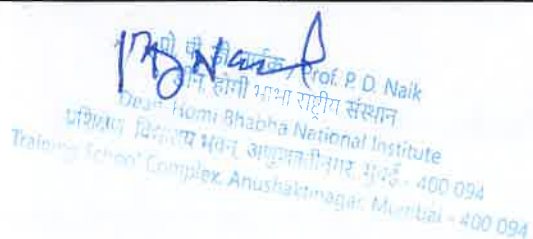 PDNaik
प्रो. पी. डी. नाईक / Prof. P. D. Naik
डीन, होमी भाभा राष्ट्रीय संस्थान
Dean, Homi Bhabha National Institute
प्रशिक्षण विद्यालय भवन, अणुशक्तीनगर, मुंबई - 400 094
Training School Complex, Anushaktinagar, Mumbai - 400 094